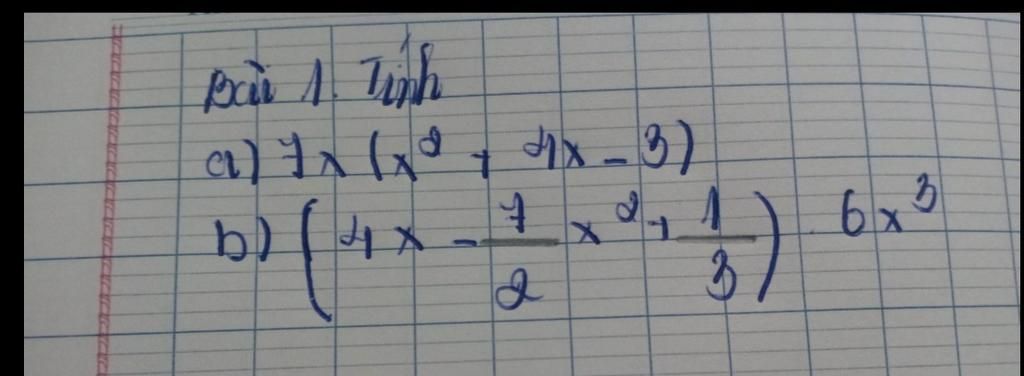 Bài 1. Tính
a) 7x (x² + 4x - 3)
b) (4x - 7/2 x² + 1/3) . 6x³